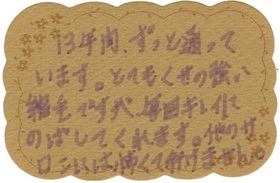 13年間、ずっと通って
います。とてもくせの強い
細毛ですが、毎回キレイに
のばしてくれます。他のサ
ロンには怖くて行けません。